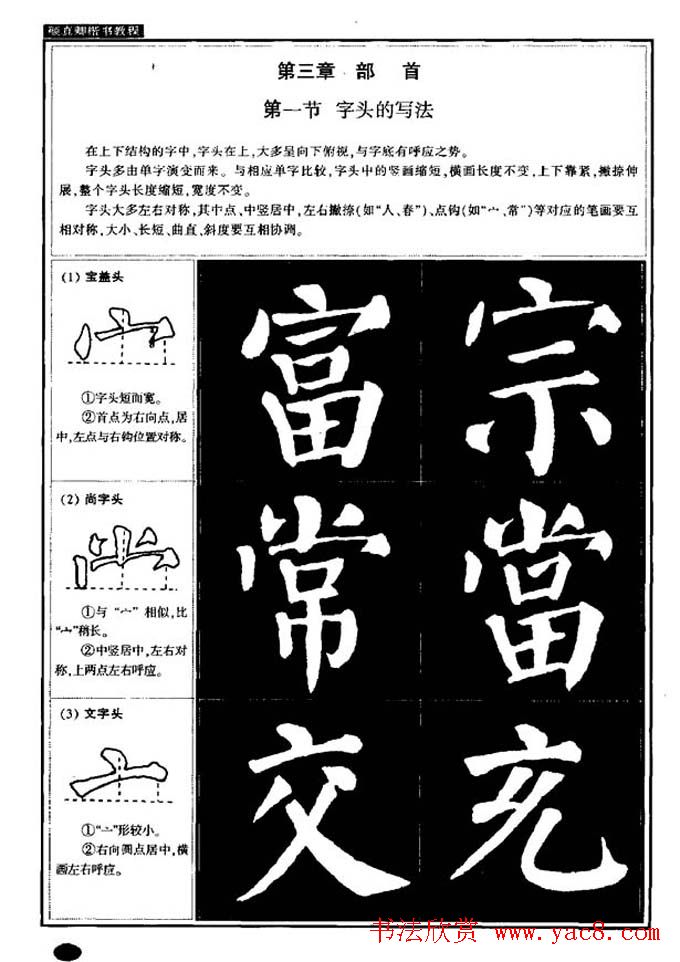 颜真卿楷书教程
第三章 部 首
第一节 字头的写法
在上下结构的字中,字头在上,大多呈向下俯视,与字底有呼应之势。
字头多由单字演变而来。与相应单字比较,字头中的竖画缩短,横画长度不变,上下靠紧,撇捺伸
展,整个字头长度缩短,宽度不变。
字头大多左右对称,其中点、中竖居中,左右撇捺(如“人、春”)、点钩(如“宀、常”)等对应的笔画要互
相对称,大小、长短、曲直、斜度要互相协调。
(1) 宝盖头
①字头短而宽。
②首点为右向点,居
中,左点与右钩位置对称。
富 宗
(2) 尚字头
①与“宀”相似,比
“宀”稍长。
②中竖居中,左右对
称,上两点左右呼应。
常 當
(3) 文字头
①“亠”形较小。
②右向圆点居中,横
画左右呼应。
交 充
书法欣赏 www.yac8.com